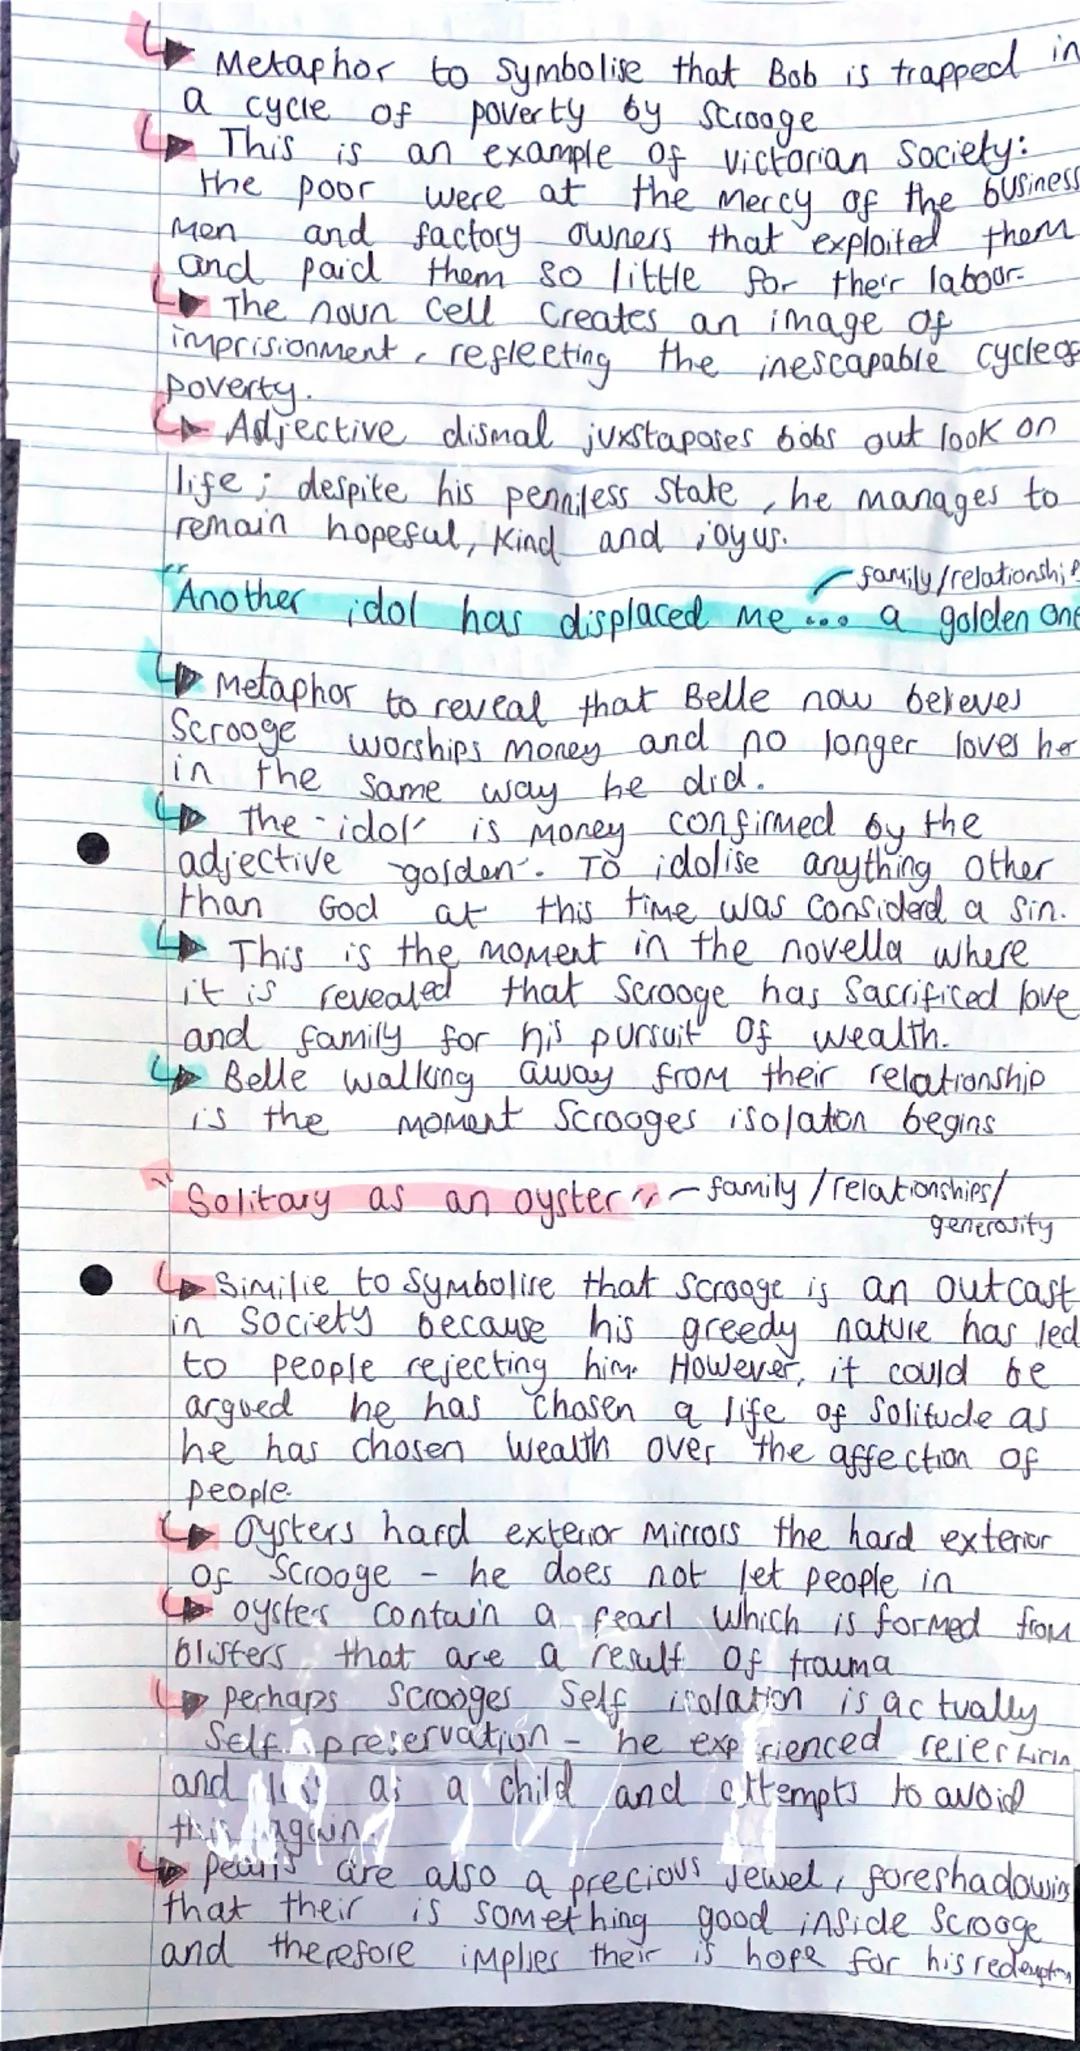 Metaphor to symbolise that Bob is trapped in
a cycle of poverty by Scrooge
This is an example of Victorian Society:
the poor were at the mercy of the business
men and factory owners that exploited them
and paid them so little for their labour.
The noun cell creates an image of
imprisionment, refleeting the inescapable cycle of
poverty.
Adjective dismal juxstaposes bobs out look on
life; despite his penniless state, he manages to
remain hopeful, kind and joyus.
family/relationships
"Another idol has displaced me... a golden one
Metaphor to reveal that Belle now beleves
Scrooge worships money and no longer loves her
in the same way he did.
The 'idol' is money confirmed by the
adjective 'golden'. To idolise anything other
than God at this time was considerd a sin.
This is the moment in the novella where
it is revealed that Scrooge has sacrificed love
and family for his pursuit of wealth.
Belle walking away from their relationship
is the moment Scrooges isolaton begins
"Solitary as an oyster" - family/relationships/
generosity
Similie to symbolise that Scrooge is an outcast
in society because his greedy nature has led
to people rejecting him. However, it could be
argued he has chosen a life of solitude as
he has chosen wealth over the affection of
people.
Oysters hard exterior mirrors the hard exterior
of Scrooge - he does not let people in
oysters contain a pearl which is formed from
blisters that are a result of trauma
perhaps Scrooges self isolation is actually
self preservation - he experienced rejection
and as a child and attempts to avoid
this again.
pearls are also a precious jewel, foreshadowing
that their is something good inside Scrooge
and therefore implies their is hope for his redemption